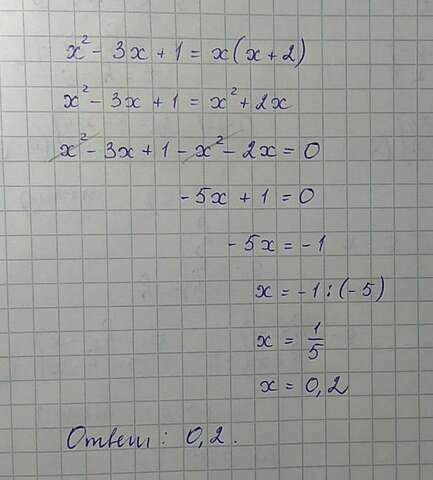 x² - 3x + 1 = x(x + 2)
x² - 3x + 1 = x² + 2x
x² - 3x + 1 - x² - 2x = 0
- 5x + 1 = 0
- 5x = - 1
x = - 1 : (- 5)
x = 1/5
x = 0,2
Ответ: 0,2.